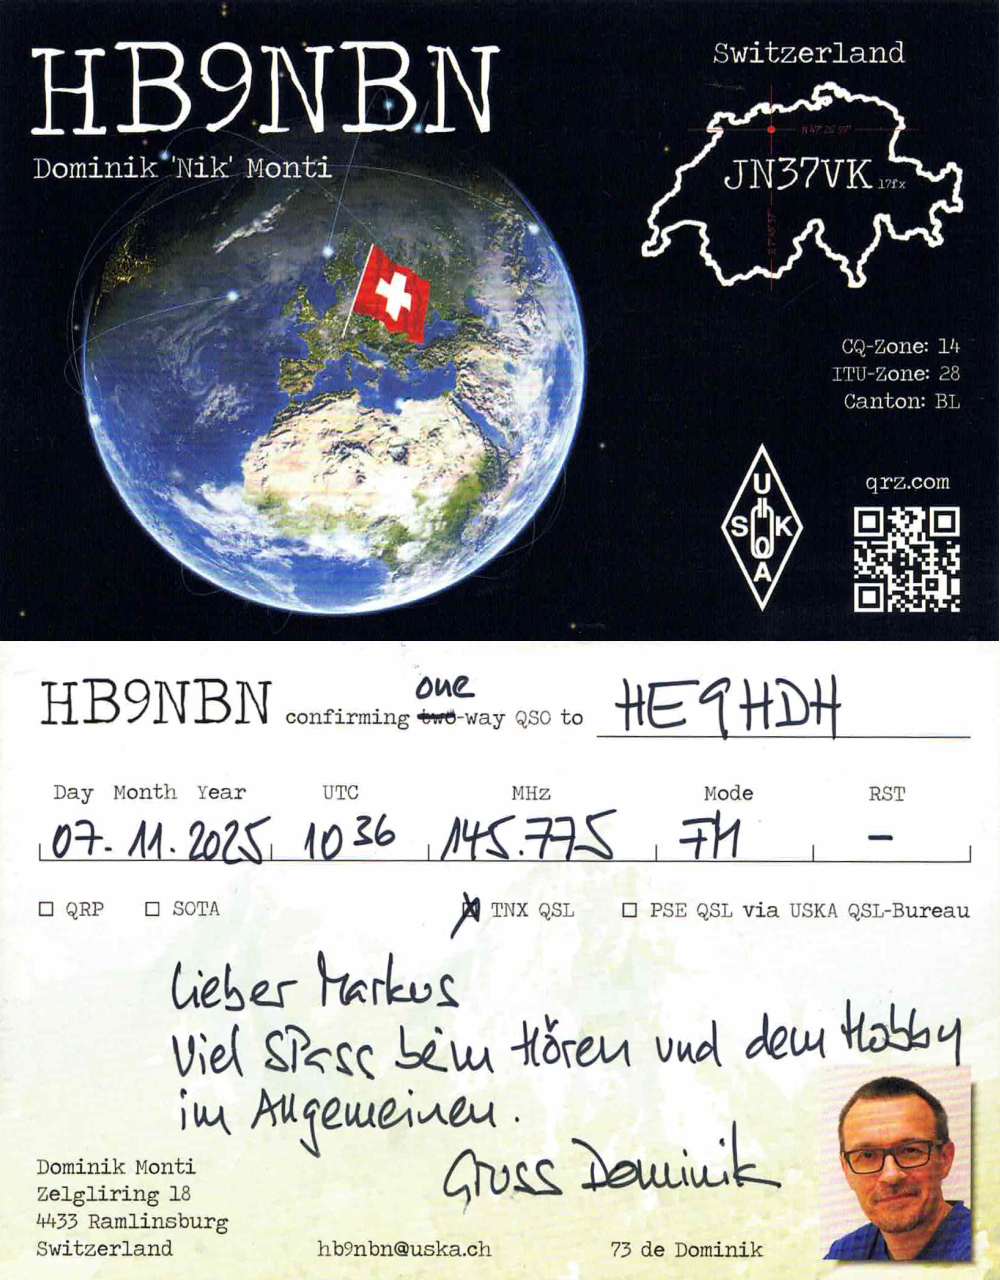 HB9NBN
Dominik 'Nik' Monti
Switzerland
JN37VK 17fx
CQ-Zone: 14
ITU-Zone: 28
Canton: BL
USKA
qrz.com
HB9NBN confirming two-way QSO to HE9HDH
one
Day Month Year UTC MHz Mode RST
07. 11. 2025 1036 145.775 FM –
☐ QRP ☐ SOTA ☒ TNX QSL ☐ PSE QSL via USKA QSL-Bureau
Lieber Markus
Viel Spass beim Hören und dem Hobby
im Allgemeinen.
Gruss Dominik
Dominik Monti
Zelgliring 18
4433 Ramlinsburg
Switzerland
hb9nbn@uska.ch
73 de Dominik